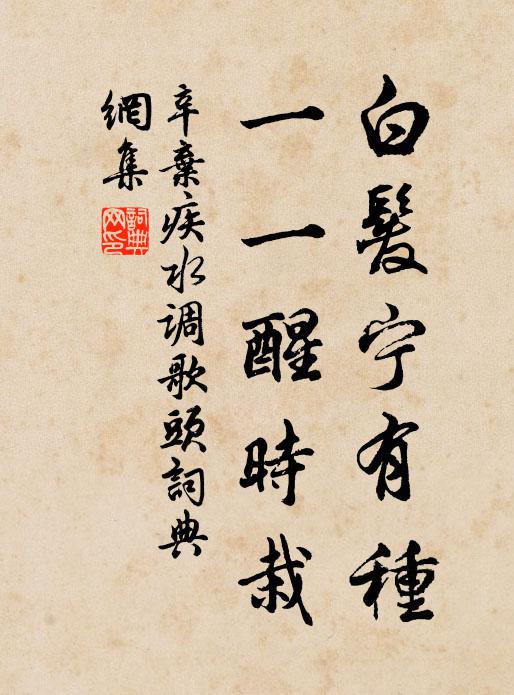 白髮宁有種
一一醒時栽
辛棄疾水调歌頭詞典
網集
詞典
网印